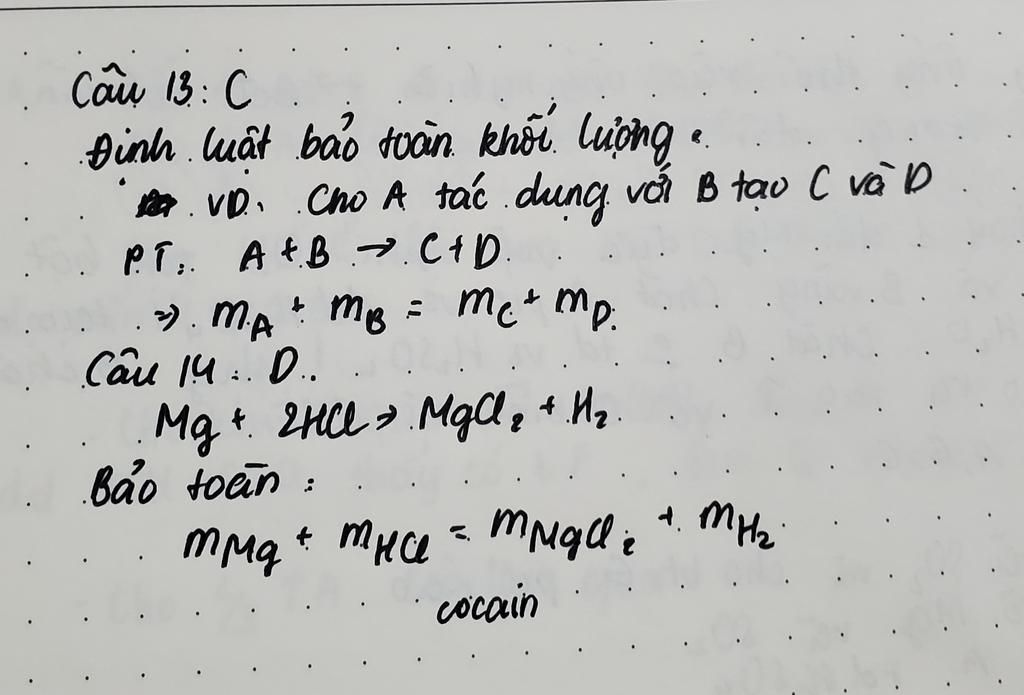 Câu 13: C
Định luật bảo toàn khối lượng.
VD: Cho A tác dụng với B tạo C và D
PT: A + B → C + D.
=> mA + mB = mC + mD.
Câu 14: D.
Mg + 2HCl → MgCl2 + H2.
Bảo toàn:
mMg + mHCl = mMgCl2 + mH2
cocain